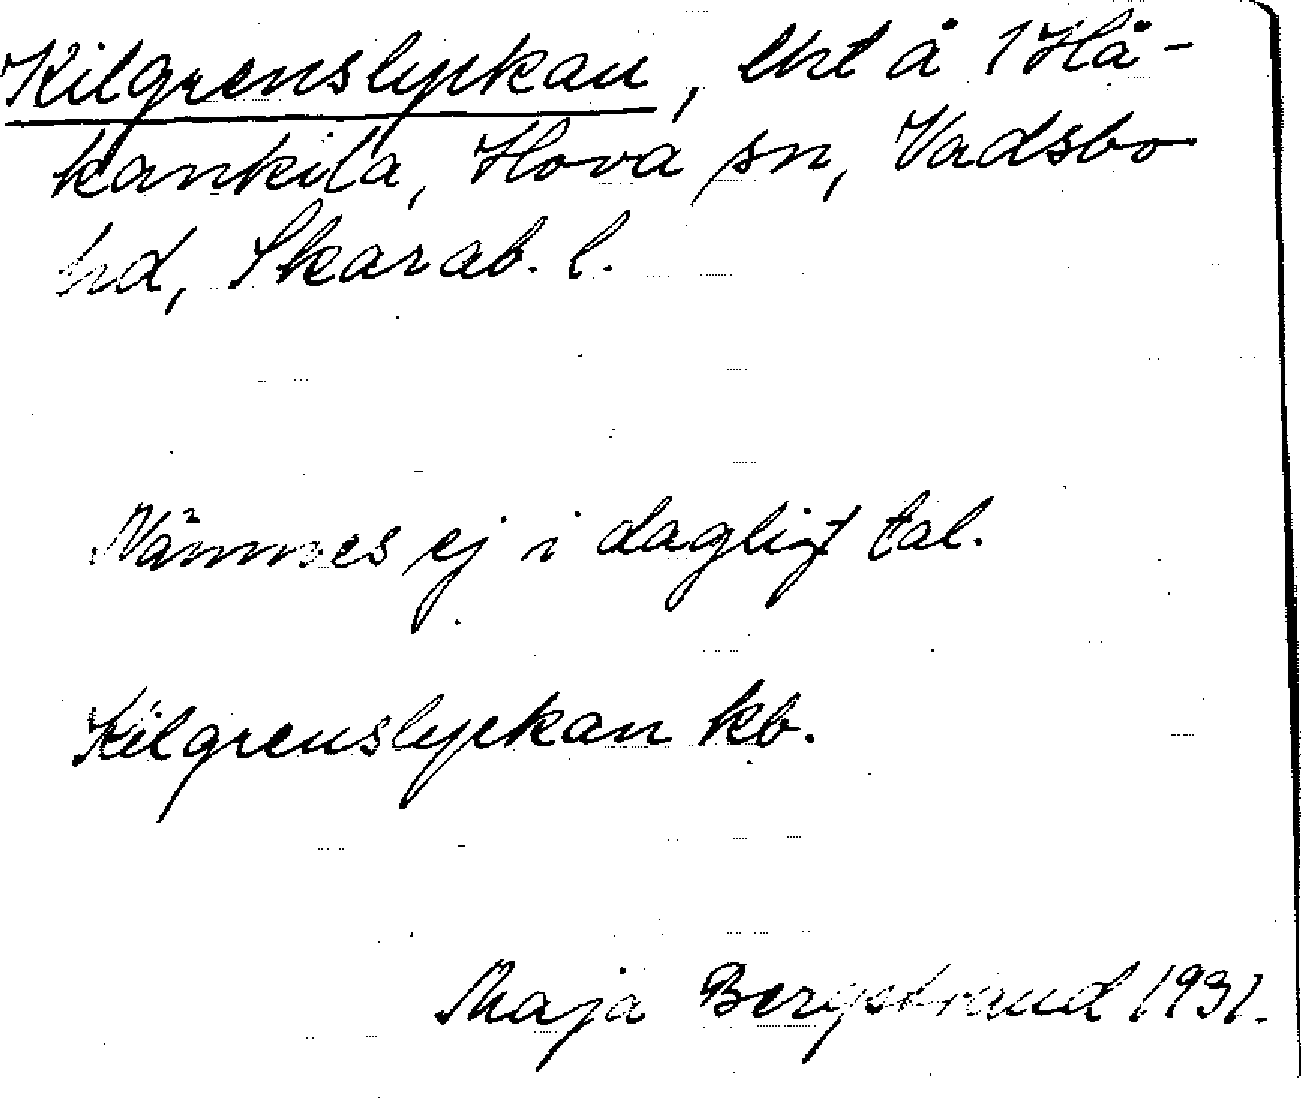 Kilgrenslyckan, lht å 1 Hå-
kankila, Hova sn, Vadsbo
hd, Skarab. l.
Nämnes ej i dagligt tal.
Kilgrenslyckan kb.
Maja Bergstrand 1931.